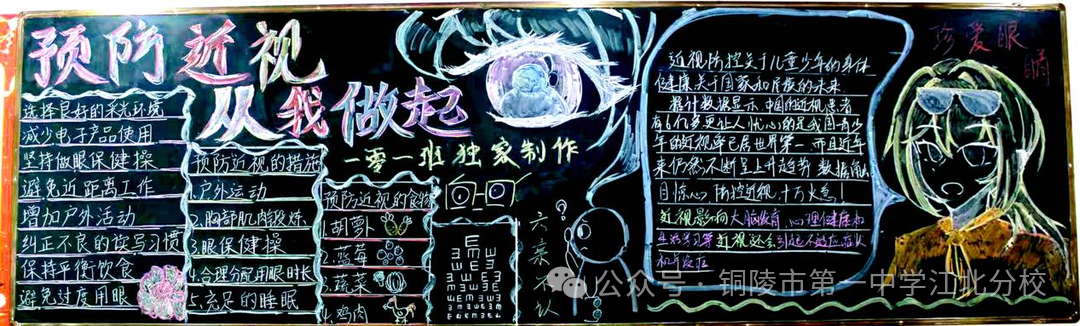 预防近视
从我做起
一零一班独家制作
选择良好的采光环境
减少电子产品使用
坚持做眼保健操
避免近距离工作
增加户外活动
纠正不良的读写习惯
保持平衡饮食
避免过度用眼
预防近视的措施
户外运动
2.胸部肌肉锻炼
3.眼保健操
4.合理分配用眼时长
5.充足的睡眠
预防近视的食物
1.胡萝卜
2.蓝莓
3.蔬菜
4.鸡肉
六亲不认
近视防控关于儿童少年的身体
健康关于国家和民族的未来
据统计数据显示,中国的近视患者
有6亿多更让人忧心的是我国青少
年的近视率已居世界第一而且近年
来仍然不断呈上升趋势 数据触
目惊心 防控近视,十万火急!
近视影响大脑发育 心理健康和
生活学习等近视还会引起不适应症状
珍爱眼
睛
公众号·铜陵市第一中学江北分校